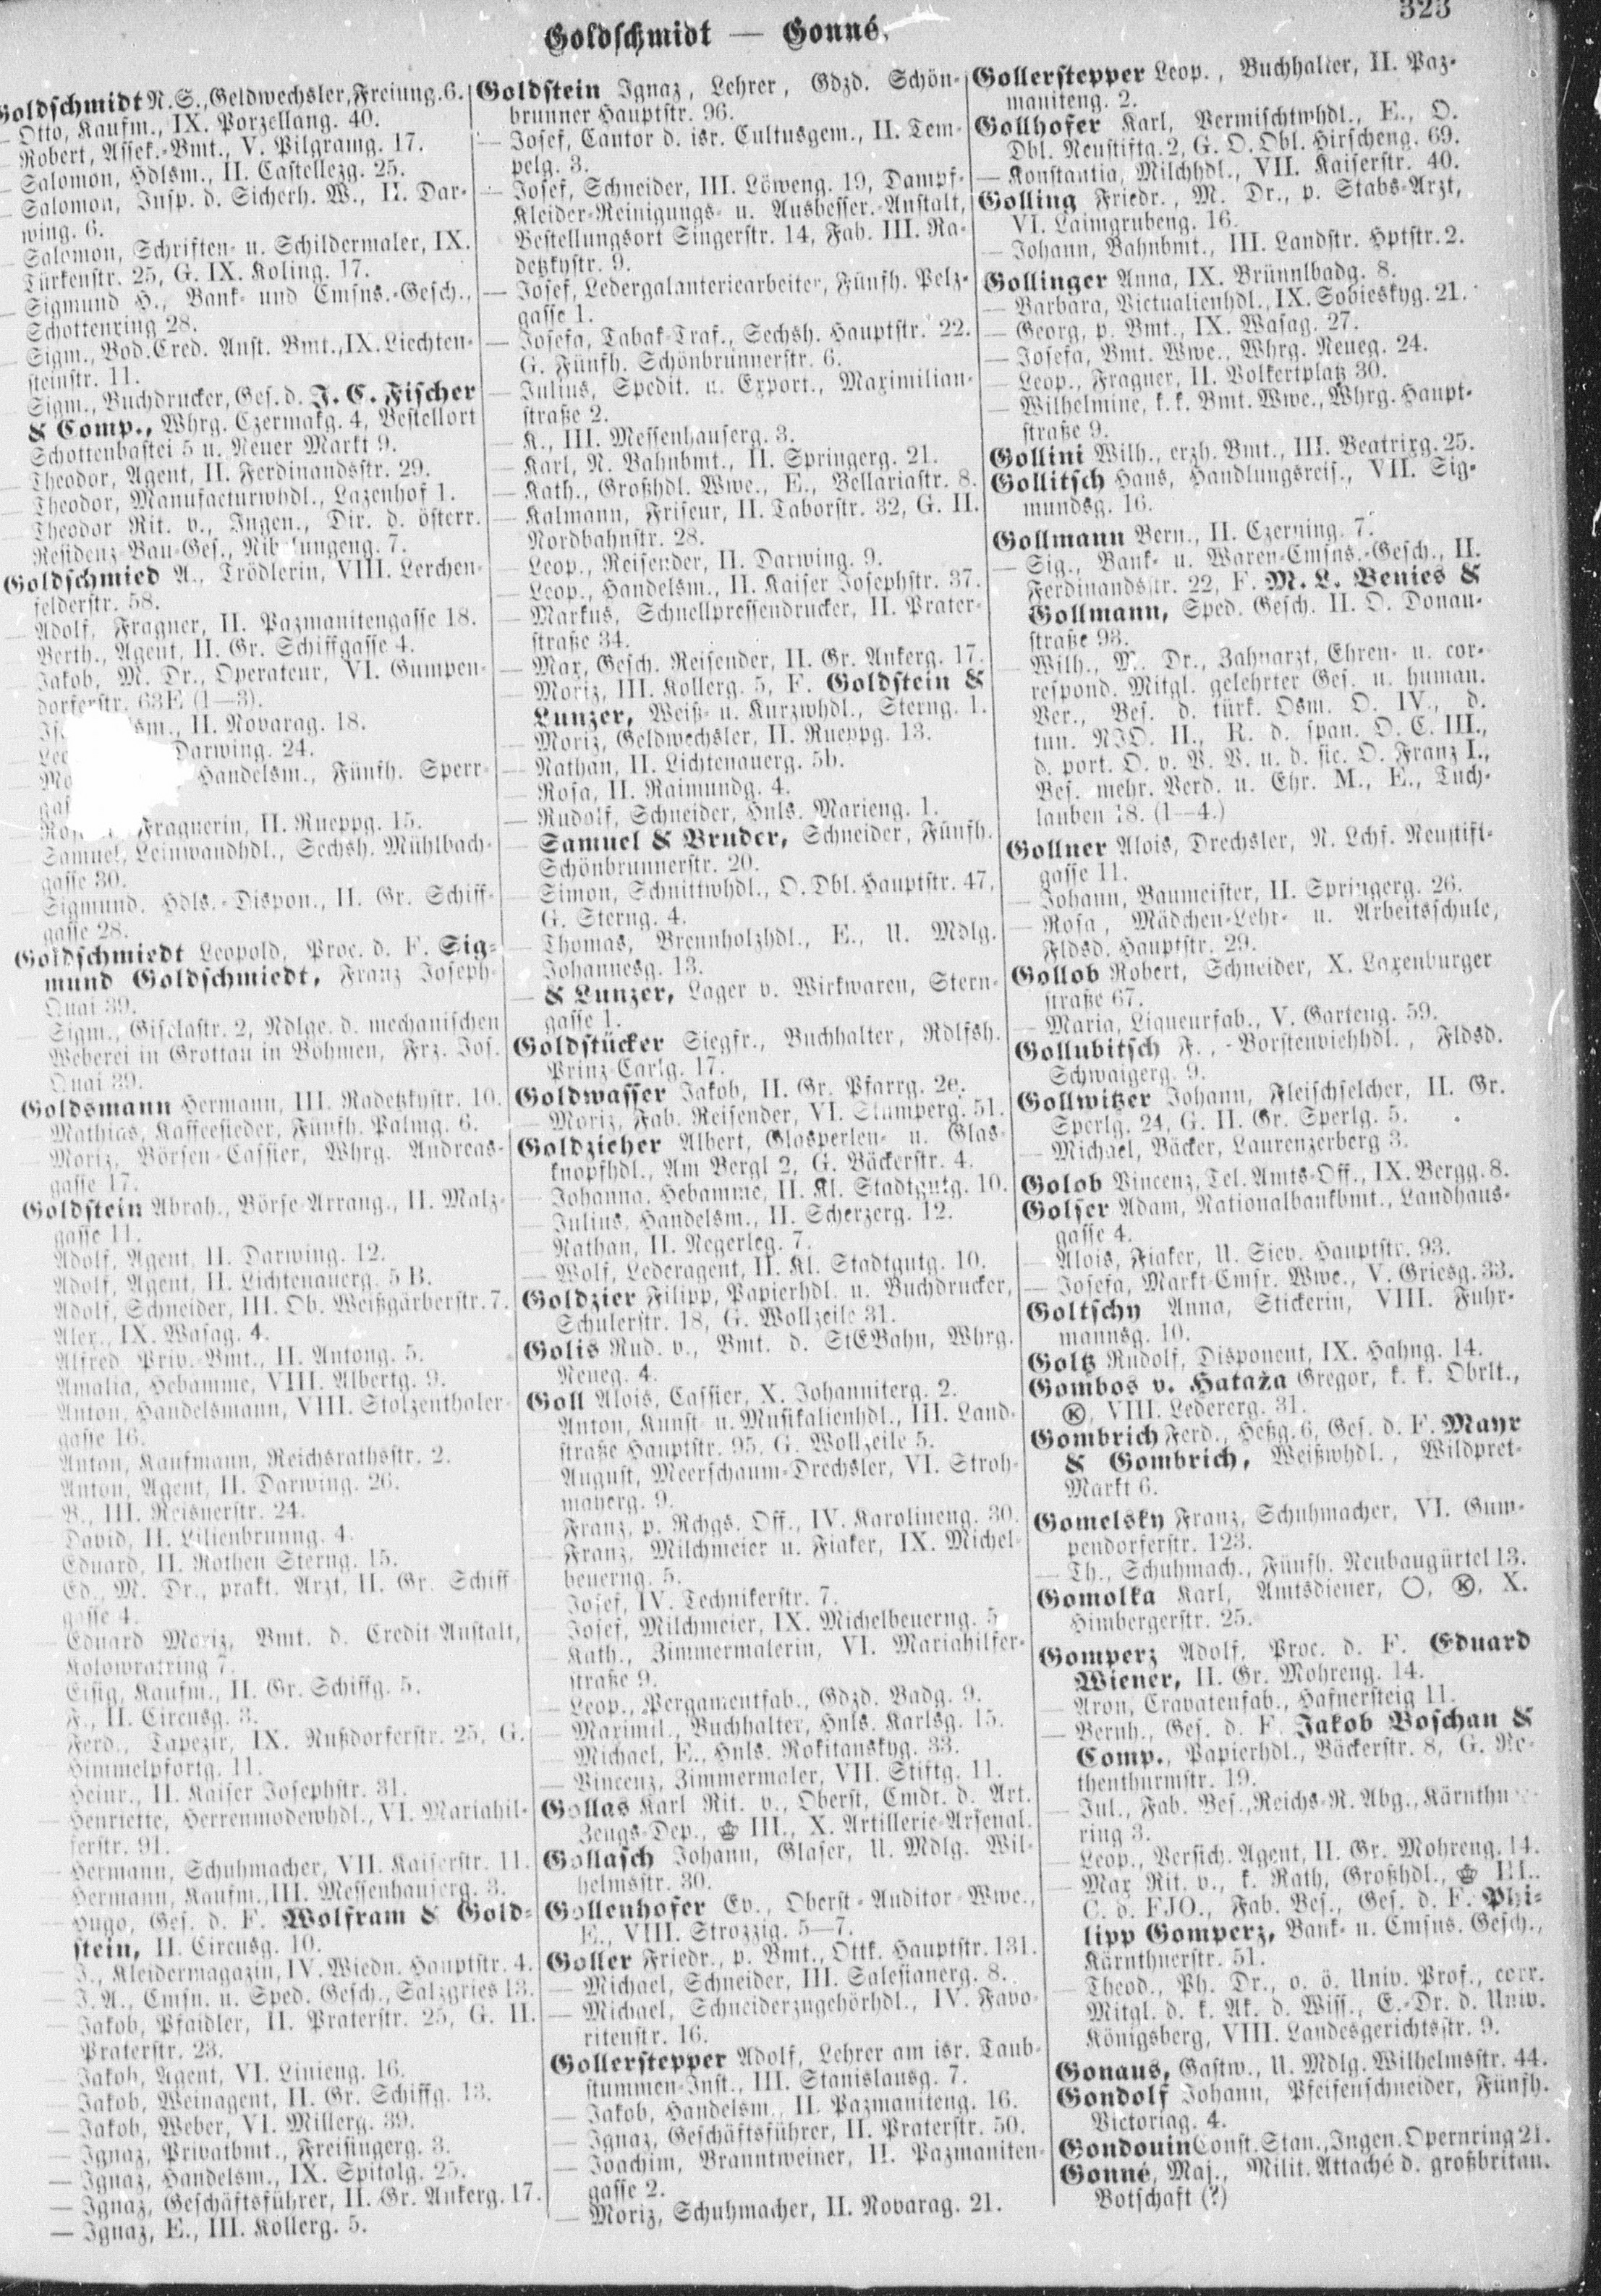 323
Goldschmidt — Gonné.
Goldschmidt N. S., Geldwechsler, Freiung. 6.
— Otto, Kaufm., IX. Porzellang. 40.
— Robert, Assek.-Bmt., V. Pilgramg. 17.
— Salomon, Hdlsm., II. Castellezg. 25.
— Salomon, Insp. d. Sicherh. W., II. Dar-
wing. 6.
— Salomon, Schriften- u. Schildermaler, IX.
Türkenstr. 25, G. IX. Koling. 17.
— Sigmund H., Bank- und Cmsns.-Gesch.,
Schottenring 28.
— Sigm., Bod. Cred. Anst. Bmt., IX. Liechten-
steinstr. 11.
Sigm., Buchdrucker, Ges. d. J. C. Fischer
& Comp., Whrg. Czermakg. 4, Bestellort
Schottenbastei 5 u. Neuer Markt 9.
— Theodor, Agent, II. Ferdinandsstr. 29.
— Theodor, Manufacturwhdl., Lazenhof 1.
— Theodor Rit. v., Ingen., Dir. d. österr.
Residenz-Bau-Ges., Nibelungeng. 7.
Goldschmied A., Trödlerin, VIII. Lerchen-
felderstr. 58.
— Adolf, Fragner, II. Pazmanitengasse 18.
— Berth., Agent, II. Gr. Schiffgasse 4.
— Jakob, M. Dr., Operateur, VI. Gumpen-
dorferstr. 63E (1—3).
II. Novarag. 18.
Darwing. 24.
Handelsm., Fünfh. Sperr-
Fragnerin, II. Rueppg. 15.
— Samuel, Leinwandhdl., Sechsh. Mühlbach-
gasse 30.
— Sigmund, Hdls.-Dispon., II. Gr. Schiff-
gasse 28.
Goldschmiedt Leopold, Proc. d. F. Sig-
mund Goldschmiedt, Franz Joseph-
Quai 39.
— Sigm., Giselastr. 2, Ndlge. d. mechanischen
Weberei in Grottau in Böhmen, Frz. Jos.
Quai 39.
Goldsmann Hermann, III. Radetzkystr. 10.
— Mathias, Kaffeesieder, Fünfh. Palmg. 6.
— Moriz, Börsen-Cassier, Whrg. Andreas-
gasse 17.
Goldstein Abrah., Börse-Arrang., II. Malz-
gasse 11.
— Adolf, Agent, II. Darwing. 12.
— Adolf, Agent, II. Lichtenauerg. 5 B.
— Adolf, Schneider, III. Ob. Weißgärberstr. 7.
— Alex., IX. Wasag. 4.
— Alfred, Priv.-Bmt., II. Antong. 5.
— Amalia, Hebamme, VIII. Albertg. 9.
— Anton, Handelsmann, VIII. Stolzenthaler-
gasse 16.
— Anton, Kaufmann, Reichsrathsstr. 2.
— Anton, Agent, II. Darwing. 26.
— B., III. Reisnerstr. 24.
— David, II. Lilienbrunng. 4.
— Eduard, II. Rothen Sterng. 15.
— Ed., M. Dr., prakt. Arzt, II. Gr. Schiff-
gasse 4.
— Eduard Moriz, Bmt. d. Credit-Anstalt,
Kolowratring 7.
— Eisig, Kaufm., II. Gr. Schiffg. 5.
— F., II. Circusg. 3.
— Ferd., Tapezir, IX. Nußdorferstr. 25, G.
Himmelpfortg. 11.
— Heinr., II. Kaiser Josephstr. 31.
— Henriette, Herrenmodewhdl., VI. Mariahil-
ferstr. 91.
— Hermann, Schuhmacher, VII. Kaiserstr. 11.
— Hermann, Kaufm., III. Messenhauserg. 3.
— Hugo, Ges. d. F. Wolfram & Gold-
stein, II. Circusg. 10.
— J., Kleidermagazin, IV. Wiedn. Hauptstr. 4.
— J. A., Cmsn. u. Sped. Gesch., Salzgries 13.
— Jakob, Pfaidler, II. Praterstr. 25, G. II.
Praterstr. 23.
— Jakob, Agent, VI. Linieng. 16.
— Jakob, Weinagent, II. Gr. Schiffg. 13.
— Jakob, Weber, VI. Millerg. 39.
— Ignaz, Privatbmt., Freisingerg. 3.
— Ignaz, Handelsm., IX. Spitalg. 25.
— Ignaz, Geschäftsführer, II. Gr. Ankerg. 17.
— Ignaz, E., III. Kollerg. 5.
Goldstein Ignaz, Lehrer, Gdzd. Schön-
brunner Hauptstr. 96.
— Josef, Cantor d. isr. Cultusgem., II. Tem-
pelg. 3.
— Josef, Schneider, III. Löweng. 19, Dampf-
Kleider-Reinigungs- u. Ausbesser.-Anstalt,
Bestellungsort Singerstr. 14, Fab. III. Ra-
detzkystr. 9.
— Josef, Ledergalanteriearbeiter, Fünfh. Pelz-
gasse 1.
— Josefa, Tabak-Traf., Sechsh. Hauptstr. 22.
G. Fünfh. Schönbrunnerstr. 6.
— Julius, Spedit. u. Export., Maximilian-
straße 2.
— K., III. Messenhauserg. 3.
— Karl, N. Bahnbmt., II. Springerg. 21.
— Kath., Großhdl. Wwe., E., Bellariastr. 8.
— Kalmann, Friseur, II. Taborstr. 32, G. II.
Nordbahnstr. 28.
— Leop., Reisender, II. Darwing. 9.
— Leop., Handelsm., II. Kaiser Josephstr. 37.
— Markus, Schnellpressendrucker, II. Prater-
straße 34.
— Max, Gesch. Reisender, II. Gr. Ankerg. 17.
— Moriz, III. Kollerg. 5, F. Goldstein &
Lunzer, Weiß- u. Kurzwhdl., Sterng. 1.
— Moriz, Geldwechsler, II. Rueppg. 13.
— Nathan, II. Lichtenauerg. 5b.
— Rosa, II. Raimundg. 4.
— Rudolf, Schneider, Hnls. Marieng. 1.
— Samuel & Bruder, Schneider, Fünfh.
Schönbrunnerstr. 20.
— Simon, Schnittwhdl., O. Dbl. Hauptstr. 47,
G. Sterng. 4.
— Thomas, Brennholzhdl., E., U. Mdlg.
Johannesg. 13.
— & Lunzer, Lager v. Wirkwaren, Stern-
gasse 1.
Goldstücker Siegfr., Buchhalter, Rdlfsh.
Prinz Carlg. 17.
Goldwasser Jakob, II. Gr. Pfarrg. 20.
— Moriz, Fab. Reisender, VI. Stumperg. 51.
Goldzieher Albert, Glasperlen- u. Glas-
knopfhdl., Am Bergl 2, G. Bäckerstr. 4.
— Johanna, Hebamme, II. Kl. Stadtgutg. 10.
— Julius, Handelsm., II. Scherzerg. 12.
— Nathan, II. Negerleg. 7.
— Wolf, Lederagent, II. Kl. Stadtgutg. 10.
Goldzier Filipp, Papierhdl. u. Buchdrucker,
Schulerstr. 18, G. Wollzeile 31.
Golis Rud. v., Bmt. d. StEBahn, Whrg.
Neueg. 4.
Goll Alois, Cassier, X. Johanniterg. 2.
— Anton, Kunst- u. Musikalienhdl., III. Land-
straße Hauptstr. 95, G. Wollzeile 5.
— August, Meerschaum-Drechsler, VI. Stroh-
mayerg. 9.
— Franz, p. Rchgs. Off., IV. Karolineng. 30.
— Franz, Milchmeier u. Fiaker, IX. Michel-
beuerng. 5.
— Josef, IV. Technikerstr. 7.
— Josef, Milchmeier, IX. Michelbeuerng. 5.
— Kath., Zimmermalerin, VI. Mariahilfer-
straße 9.
— Leop., Pergamentfab., Gdzd. Badg. 9.
— Maximil., Buchhalter, Hnls. Karlsg. 15.
— Michael, E., Hnls. Rokitanskyg. 33.
— Vincenz, Zimmermaler, VII. Stiftg. 11.
Gollas Karl Rit. v., Oberst, Cmdt. d. Art.
Zeugs-Dep., III., X. Artillerie-Arsenal.
Gollasch Johann, Glaser, U. Mdlg. Wil-
helmsstr. 30.
Gollenhofer Ev., Oberst-Auditor-Wwe.,
E., VIII. Strozzig. 5—7.
Goller Friedr., p. Bmt., Ottk. Hauptstr. 131.
— Michael, Schneider, III. Salesianerg. 8.
— Michael, Schneiderzugehörhdl., IV. Favo-
ritenstr. 16.
Gollerstepper Adolf, Lehrer am isr. Taub-
stummen-Inst., III. Stanislausg. 7.
— Jakob, Handelsm., II. Pazmaniteng. 16.
— Ignaz, Geschäftsführer, II. Praterstr. 50.
— Joachim, Branntweiner, II. Pazmaniten-
gasse 2.
— Moriz, Schuhmacher, II. Novarag. 21.
Gollerstepper Leop., Buchhalter, II. Paz-
maniteng. 2.
Gollhofer Karl, Vermischtwhdl., E., O.
Dbl. Neustiftg. 2, G. O. Dbl. Hirscheng. 69.
— Konstantia, Milchhdl., VII. Kaiserstr. 40.
Golling Friedr., M. Dr., p. Stabs-Arzt,
VI. Laimgrubeng. 16.
— Johann, Bahnbmt., III. Landstr. Hptstr. 2.
Gollinger Anna, IX. Brünnlbadg. 8.
— Barbara, Victualienhdl., IX. Sobieskyg. 21.
— Georg, p. Bmt., IX. Wasag. 27.
— Josefa, Bmt. Wwe., Whrg. Neueg. 24.
— Leop., Fragner, II. Volkertplatz 30.
— Wilhelmine, k. k. Bmt. Wwe., Whrg. Haupt-
straße 9.
Gollini Wilh., erzh. Bmt., III. Beatrixg. 25.
Gollitsch Hans, Handlungsreis., VII. Sig-
mundsg. 16.
Gollmann Bern., II. Czerning. 7.
— Sig., Bank- u. Waren-Cmsns.-Gesch., II.
Ferdinandsstr. 22, F. M. L. Benies &
Gollmann, Sped. Gesch. II. O. Donau-
straße 93.
— Wilh., M. Dr., Zahnarzt, Ehren- u. cor-
respond. Mitgl. gelehrter Ges. u. human.
Ver., Bes. d. türk. Osm. O. IV., d.
tun. NJO. II., R. d. span. O. C. III.,
d. port. O. v. V. V. u. d. sic. O. Franz I.,
Bes. mehr. Verd. u. Ehr. M., E., Tuch-
lauben 18. (1—4.)
Gollner Alois, Drechsler, N. Lchf. Neustift-
gasse 11.
— Johann, Baumeister, II. Springerg. 26.
— Rosa, Mädchen-Lehr- u. Arbeitsschule,
Fldsd. Hauptstr. 29.
Gollob Robert, Schneider, X. Laxenburger
straße 67.
— Maria, Liqueurfab., V. Garteng. 59.
Gollubitsch F., Borstenviehhdl., Fldsd.
Schwaigerg. 9.
Gollwitzer Johann, Fleischselcher, II. Gr.
Sperlg. 24, G. II. Gr. Sperlg. 5.
— Michael, Bäcker, Laurenzerberg 3.
Golob Vincenz, Tel. Amts-Off., IX. Bergg. 8.
Golser Adam, Nationalbankbmt., Landhaus-
gasse 4.
— Alois, Fiaker, U. Siev. Hauptstr. 93.
— Josefa, Markt-Cmsr. Wwe., V. Griesg. 33.
Goltschy Anna, Stickerin, VIII. Fuhr-
mannsg. 10.
Goltz Rudolf, Disponent, IX. Hahng. 14.
Gombos v. Hataža Gregor, k. k. Obrlt.,
Ⓚ, VIII. Ledererg. 31.
Gombrich Ferd., Heßg. 6, Ges. d. F. Mayr
& Gombrich, Weißwhdl., Wildpret-
Markt 6.
Gomelsky Franz, Schuhmacher, VI. Gum-
pendorferstr. 123.
— Th., Schuhmach., Fünfh. Neubaugürtel 13.
Gomolka Karl, Amtsdiener, ◯, Ⓚ, X.
Himbergerstr. 25.
Gomperz Adolf, Proc. d. F. Eduard
Wiener, II. Gr. Mohreng. 14.
— Aron, Cravatenfab., Hafnersteig 11.
— Bernh., Ges. d. F. Jakob Boschan &
Comp., Papierhdl., Bäckerstr. 8, G. Ro-
thenthurmstr. 19.
— Jul., Fab. Bes., Reichs-R. Abg., Kärnthner-
ring 3.
— Leop., Versich. Agent, II. Gr. Mohreng. 14.
— Max Rit. v., k. Rath, Großhdl., III.,
C. d. FJO., Fab. Bes., Ges. d. F. Phi-
lipp Gomperz, Bank- u. Cmsns. Gesch.,
Kärnthnerstr. 51.
— Theod., Ph. Dr., o. ö. Univ. Prof., corr.
Mitgl. d. k. Ak. d. Wiss., E.-Dr. d. Univ.
Königsberg, VIII. Landesgerichtsstr. 9.
Gonaus, Gastw., U. Mdlg. Wilhelmsstr. 44.
Gondolf Johann, Pfeifenschneider, Fünfh.
Victoriag. 4.
Gondouin Const. Stan., Ingen. Opernring 21.
Gonné, Maj., Milit. Attaché d. großbritan.
Botschaft (?)